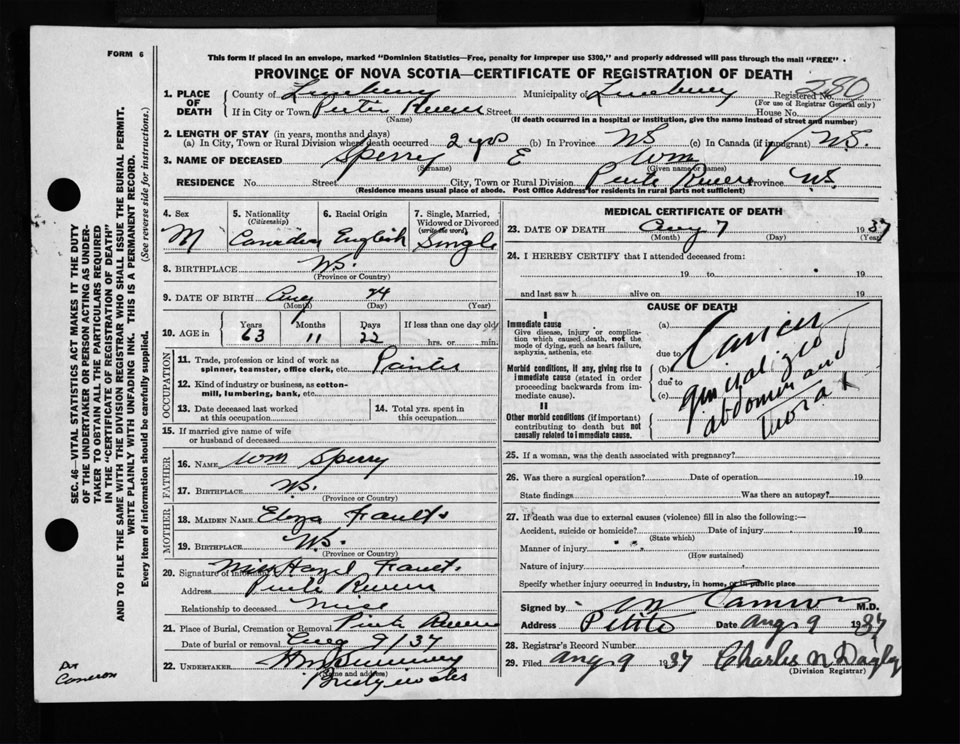 FORM 6
This form if placed in an envelope, marked "Dominion Statistics—Free, penalty for improper use $300," and properly addressed will pass through the mail "FREE"
PROVINCE OF NOVA SCOTIA—CERTIFICATE OF REGISTRATION OF DEATH
1. PLACE OF DEATH County of Lunenburg Municipality of Lunenburg Registered No. 280
(For use of Registrar General only)
If in City or Town Street House No.
(Name) (If death occurred in a hospital or institution, give the name instead of street and number)
2. LENGTH OF STAY (in years, months and days)
(a) In City, Town or Rural Division where death occurred 2 yrs (b) In Province NS (c) In Canada (if immigrant) NS.
3. NAME OF DECEASED Sperry E Wm
(Surname) (Given name or names)
RESIDENCE No. Street City, Town or Rural Division Province N.S.
(Residence means usual place of abode. Post Office Address for residents in rural parts not sufficient)
4. Sex M
5. Nationality (Citizenship) Canadian
6. Racial Origin English
7. Single, Married, Widowed or Divorced (write the word) Single
8. BIRTHPLACE N.S.
(Province or Country)
9. DATE OF BIRTH Aug 24
(Month) (Day) (Year)
10. AGE in Years Months Days If less than one day old
63 11 22 hrs. or min.
OCCUPATION
11. Trade, profession or kind of work as spinner, teamster, office clerk, etc. Painter
12. Kind of industry or business, as cotton-mill, lumbering, bank, etc.
13. Date deceased last worked at this occupation
14. Total yrs. spent in this occupation
15. If married give name of wife or husband of deceased
FATHER
16. NAME Wm Sperry
17. BIRTHPLACE N.S.
(Province or Country)
MOTHER
18. MAIDEN NAME
19. BIRTHPLACE N.S.
(Province or Country)
20. Signature of informant Miss Hazel
Address
Relationship to deceased niece
21. Place of Burial, Cremation or Removal
Date of burial or removal Aug 9/37
22. UNDERTAKER
(Name and address)
Bridgewater
MEDICAL CERTIFICATE OF DEATH
23. DATE OF DEATH Aug 7 1937
(Month) (Day) (Year)
24. I HEREBY CERTIFY that I attended deceased from:
19 to 19
and last saw h alive on 19
CAUSE OF DEATH
I
Immediate cause
Give disease, injury or complication which caused death, not the mode of dying, such as heart failure, asphyxia, asthenia, etc.
Morbid conditions, if any, giving rise to immediate cause (stated in order proceeding backwards from immediate cause).
II
Other morbid conditions (if important) contributing to death but not causally related to immediate cause.
(a) Cancer
due to
(b) generalized
due to
(c) abdomen and
25. If a woman, was the death associated with pregnancy?
26. Was there a surgical operation? Date of operation 19
State findings Was there an autopsy?
27. If death was due to external causes (violence) fill in also the following:—
Accident, suicide or homicide? Date of injury 19
(State which)
Manner of injury
(How sustained)
Nature of injury
Specify whether injury occurred in industry, in home, or in public place
Signed by Cameron M.D.
Address Petite Date Aug 9 1937
28. Registrar's Record Number
29. Filed Aug 9 1937 Charles N Dagley
(Division Registrar)
SEC. 46—VITAL STATISTICS ACT MAKES IT THE DUTY
OF THE UNDERTAKER OR PERSON ACTING AS UNDER-
TAKER TO OBTAIN ALL THE PARTICULARS REQUIRED
IN THE "CERTIFICATE OF REGISTRATION OF DEATH"
AND TO FILE THE SAME WITH THE DIVISION REGISTRAR WHO SHALL ISSUE THE BURIAL PERMIT.
WRITE PLAINLY WITH UNFADING INK. THIS IS A PERMANENT RECORD.
Every item of information should be carefully supplied. (See reverse side for instructions.)
Dr
Cameron